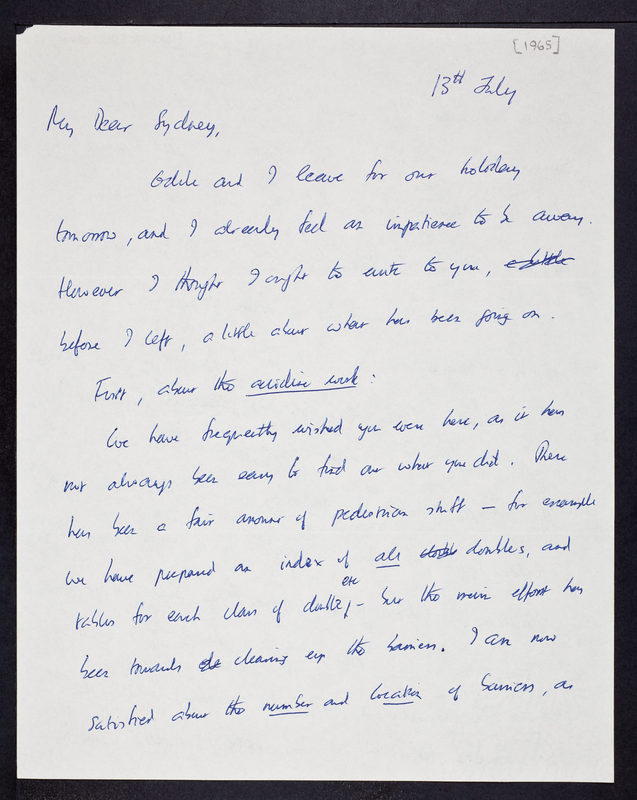 [1965]
13th July
My Dear Sydney,
Odile and I leave for our holiday
tomorrow, and I already feel an impatience to be away.
However I thought I ought to write to you, a little
before I left, a little about what has been going on.
First, about the acridine work:
We have frequently wished you were here, as it has
not always been easy to find out what you did. There
has been a fair amount of pedestrian stuff – for example
we have prepared an index of all doubles, and
tables for each class of double, etc – but the main effort has
been towards clearing up the barriers. I am now
satisfied about the number and location of barriers, as